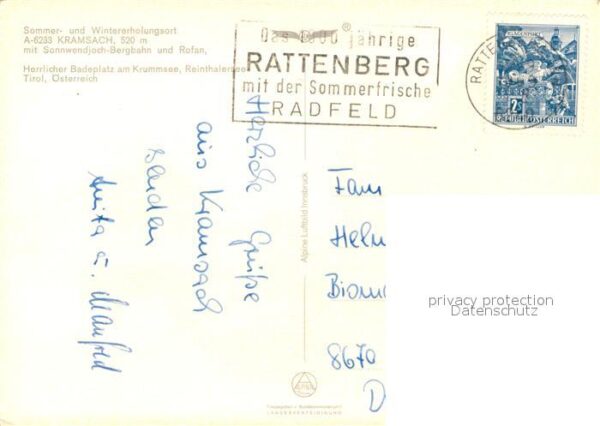 Sommer- und Wintererholungsort
A-6233 KRAMSACH, 520 m
mit Sonnwendjoch-Bergbahn und Rofan,
Herrlicher Badeplatz am Krummsee, Reinthalersee
Tirol, Österreich
Das 1000 jährige
RATTENBERG
mit der Sommerfrische
RADFELD
RATTEN
2S
REPUBLIK ÖSTERREICH
Herzliche Grüße
aus Kramsach
senden
Anita u. Manfred
Alpine Luftbild Innsbruck
Fam
Helm
Bism
8670
D
privacy protection
Datenschutz